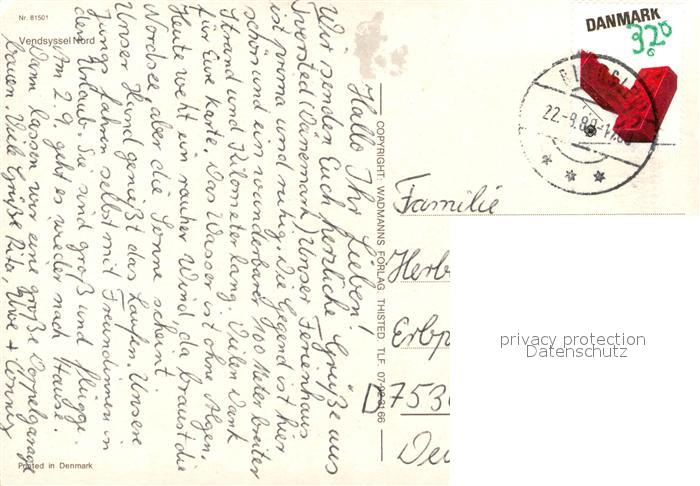 Nr. 81501
Vendsyssel Nord
Hallo Ihr Lieben!
Wir senden Euch herzliche Grüße aus
Tversted (Dänemark) Unser Ferienhaus
ist prima und ruhig. Die Gegend ist hier
schön und ein wunderbarer 100 Meter breiter
Strand und Kilometer lang. Vielen Dank
für Eure Karte. Das Wasser ist ohne Algen.
Heute weht ein rauher Wind, da braust die
Nordsee aber die Sonne scheint.
Unser Hund genießt das Laufen. Unsere
Jungs fahren selbst mit Freundinnen in
den Urlaub. Sie sind groß und flügge.
Am 2.9. geht es wieder nach Hause.
Dann lassen wir eine große Doppelgarage
bauen. Viele Grüße Rita, Uwe +
Printed in Denmark
COPYRIGHT: WADMANNS FORLAG THISTED TLF. 07-92 3166
DANMARK
3.20
22.-8.89-
Familie
Herb
Erbp
D 753
Deu
privacy protection
Datenschutz